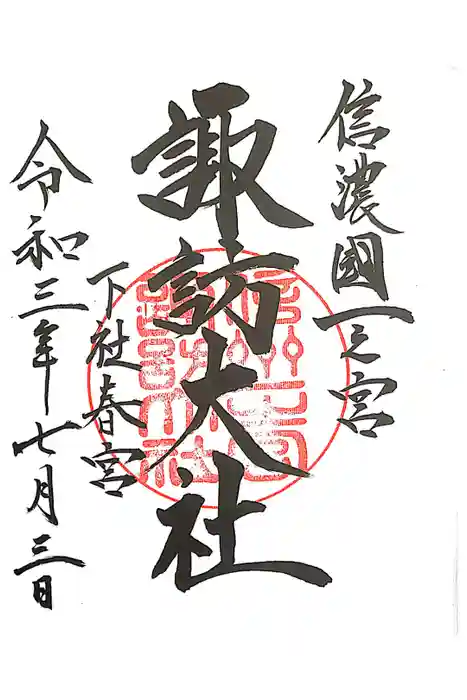 信濃國一之宮
諏訪大社
下社春宮
令和三年七月三日